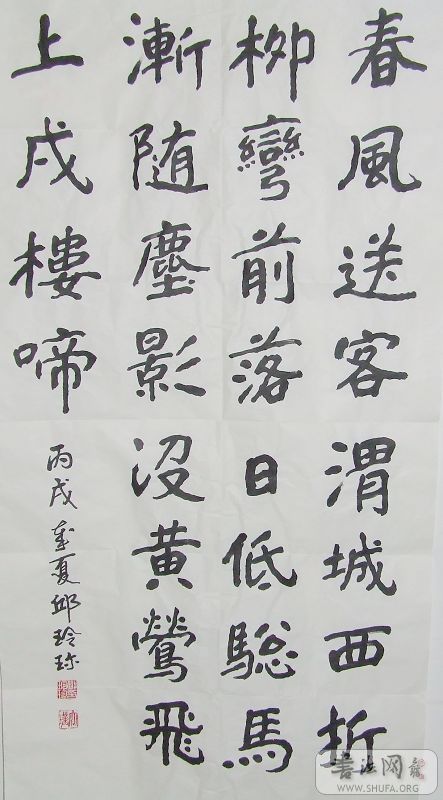 春風送客渭城西折
柳彎前落日低騘馬
漸随塵影没黄鶯飛
上戍樓啼
丙戌年夏邱玲珍
書法网
WWW.SHUFA.ORG